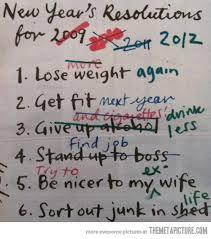 New Year's Resolutions
for 2009 2011 2012
more
1. Lose weight again
2. Get fit next year
and cigarettes! drink
3. Give up alcohol less
find job
4. Stand up to boss
Try to ex-
5. Be nicer to my wife
life
6. Sort out junk in shed
more awesome pictures at THEMETAPICTURE.COM